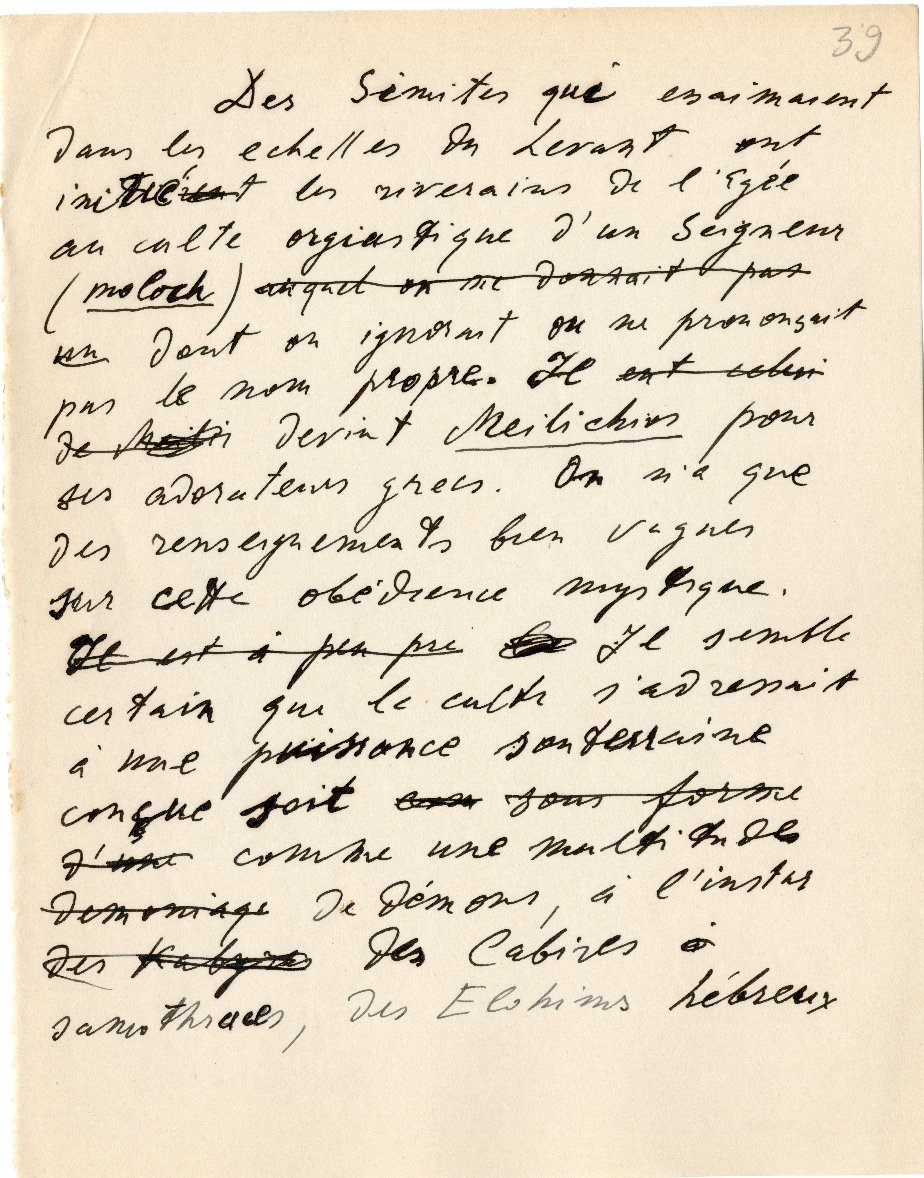 39
Des Sémites qui essaimaient
dans les echelles du Levant ont
initié les riverains de l'Egée
au culte orgiastique d'un Seigneur
(moloch) auquel on ne donnait pas
un dont on ignorait ou ne prononçait
pas le nom propre. Il est celui
de devint Meilichios pour
ses adorateurs grecs. On n'a que
des renseignements bien vagues
sur cette obédience mystique.
Il est à peu pre Il semble
certain que le culte s'adressait
à une puissance souterraine
conçue soit sous forme
d'une comme une multitude
demoniaqe de démons, à l'instar
des Kabyres des Cabires à
samothraces, des Elohims hébreux